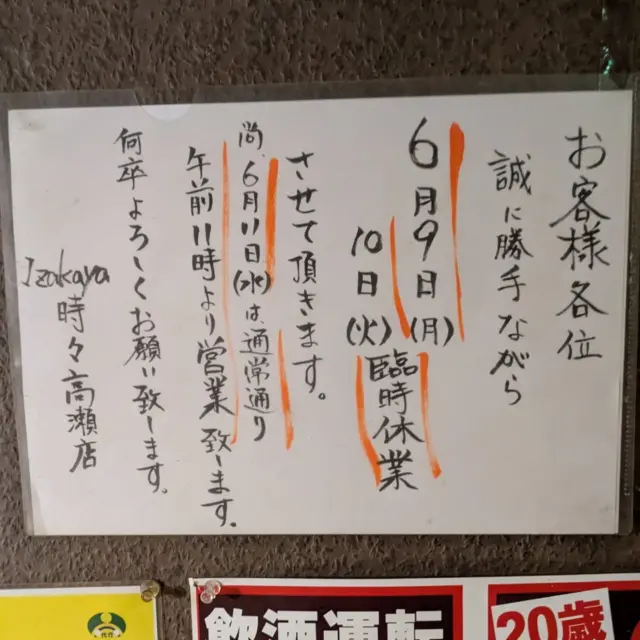 お客様各位
誠に勝手ながら
6月9日(月)
10日(火)
臨時休業
させて頂きます。
尚、6月11日(水)は通常通り
午前11時より営業致します。
何卒よろしくお願い致します。
Izakaya
時々高瀬店
飲酒運転
20歳